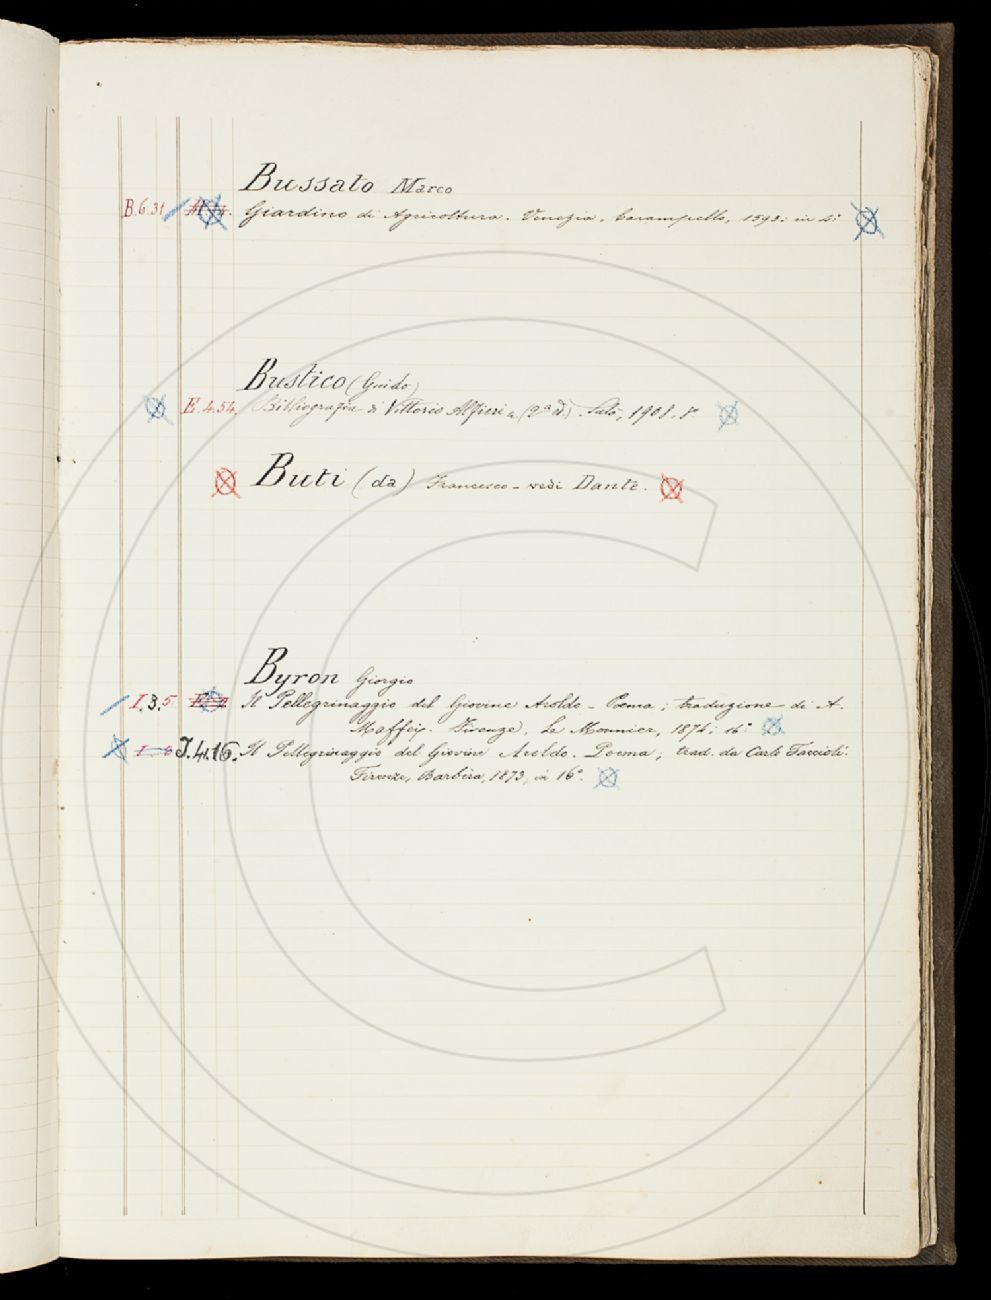 Bussato Marco
B.6.31 Giardino di Agricoltura. Venezia, Carampello, 1593: in 4.°
Bustico (Guido)
E.4.54. Bibliografia di Vittorio Alfieri (2ª ed.). Salò, 1908, 8°
Buti (da) Francesco - vedi Dante.
Byron Giorgio
I.3.5. Il Pellegrinaggio del Giovine Aroldo - Poema; traduzione di A.
Maffei. Firenze, Le Monnier, 1874; 16°
I.4.16. Il Pellegrinaggio del Giovine Aroldo. Poema; trad. da Carlo Faccioli.
Firenze, Barbèra, 1873, in 16°.